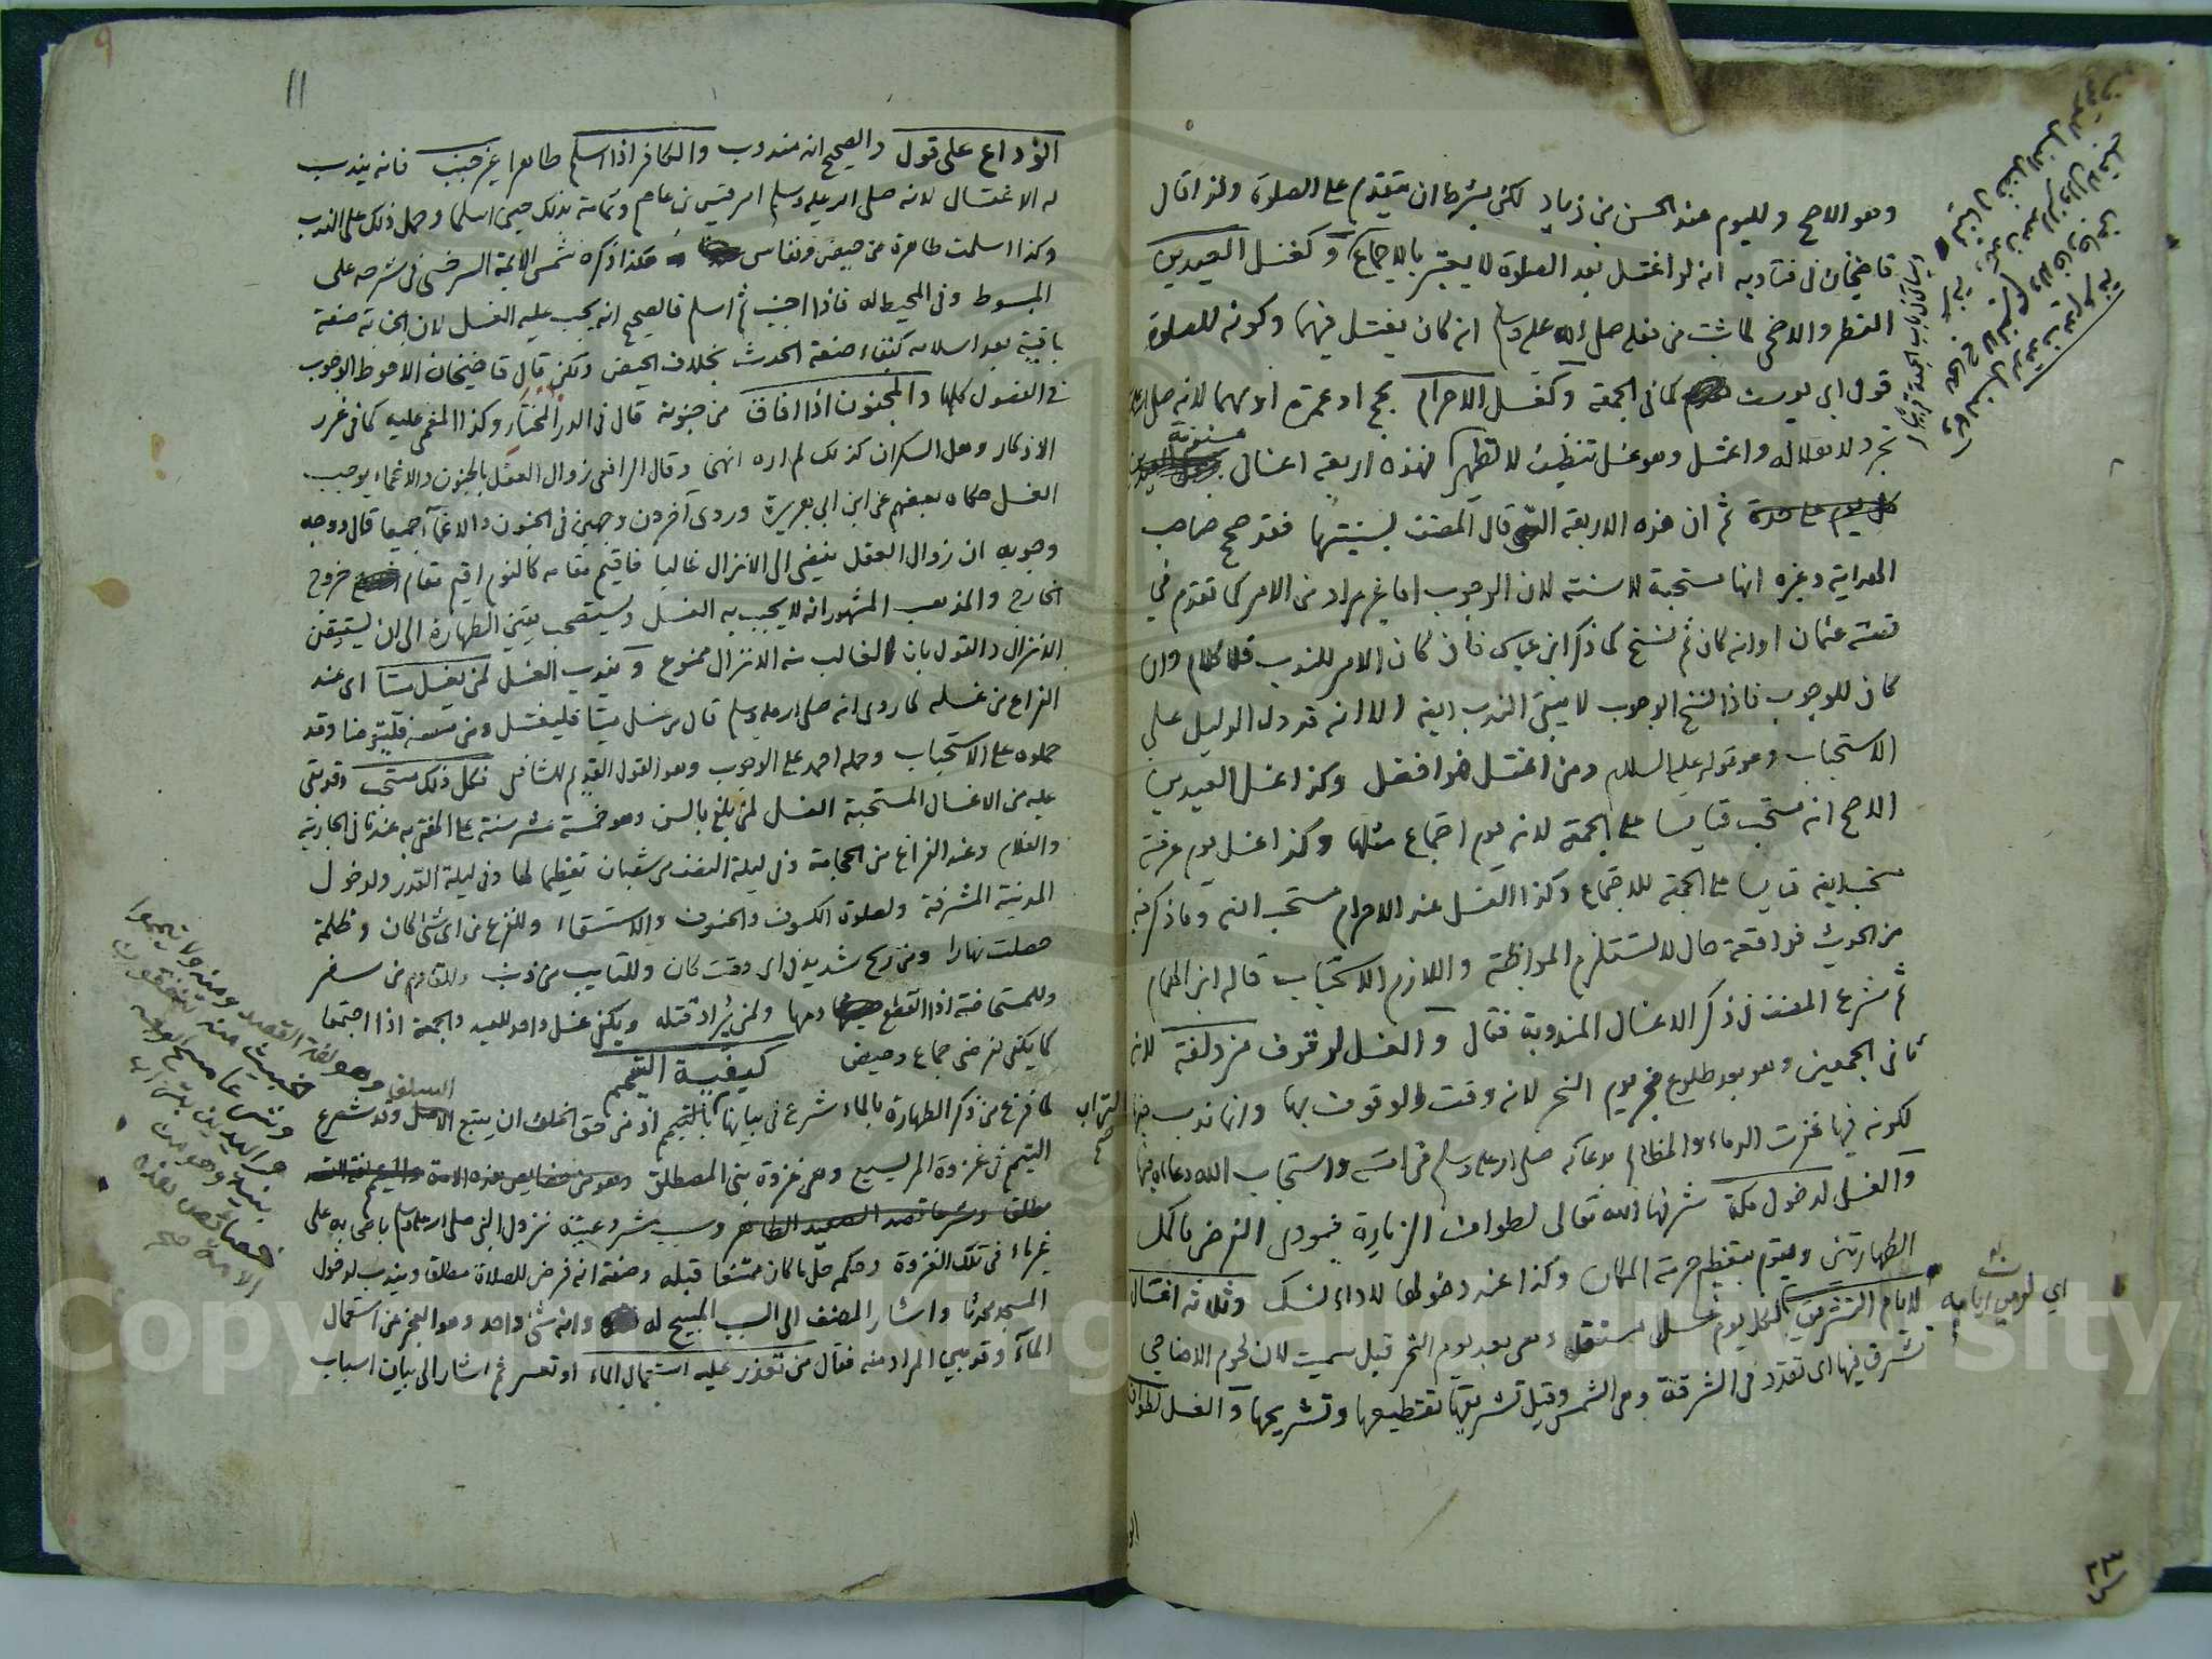 وهو الاصح ولليوم عند الحسن بن زياد لكن بشرط ان يتقدم على الصلوة ولذا قال
قاضيخان في فتاويه انه لو اغتسل بعد الصلوة لا يعتبر بالاجماع وكغسل العيدين
الفطر والاضحى لما ثبت من فعله صلى الله عليه وسلم انه كان يغتسل فيهما وكونه للصلوة
قول ابي يوسف كما في الجمعة وكغسل الاحرام بحج او عمرة او بهما لانه صلى الله
تجرد لاهلاله واغتسل وهو غسل تنظيف لا تطهير فهذه اربعة اغسال مسنونة
ثم ان هذه الاربعة التي قال المصنف بسنيتها فقد صحح صاحب
الهداية وغيره انها مستحبة لا سنة لان الوجوب اما غير مراد من الامر كما تقدم في
قصة عثمان او انه كان ثم نسخ كما ذكر ابن عباس فان كان الامر للندب فلا كلام وان
كان للوجوب فاذا نسخ الوجوب لا يبقى الندب ايضا الا انه قد دل الدليل على
الاستحباب وهو قوله عليه السلام ومن اغتسل فهو افضل وكذا غسل العيدين
الاصح انه مستحب قياسا على الجمعة لانه يوم اجتماع مثلها وكذا غسل يوم عرفة
مستحب ايضا قياسا على الجمعة للاجتماع وكذا الغسل عند الاحرام مستحب انتهى وما ذكر فيه
من الحديث فواقعة حال لا تستلزم المواظبة واللازم الاستحباب قاله ابن الهمام
ثم شرع المصنف في ذكر الاغسال المندوبة فقال والغسل لوقوف مزدلفة لانه
ثاني الجمعين وهو بعد طلوع فجر يوم النحر لانه وقت الوقوف بها وانما ندب فيها
لكونه فيها غفرت الدماء والمظالم بدعائه صلى الله عليه وسلم في امته واستجاب الله دعاءه فيها
والغسل لدخول مكة شرفها الله تعالى لطواف الزيارة فيؤدي الفرض باكمل
الطهارتين ويقوم بتعظيم حرمة المكان وكذا عند دخولها لاداء نسك وثلاثة اغسال
لايام التشريق لكل يوم غسل مستقل وهي بعد يوم النحر قيل سميت لان لحوم الاضاحي
تشرق فيها اى تقدد في الشرقة وهي الشمس وقيل تشريقها تقطيعها وتشريحها والغسل لطواف
اي لرمي ايام
٢٣
11
9
الوداع على قول والصحيح انه مندوب والكافر اذا اسلم طاهرا غير جنب فانه يندب
له الاغتسال لانه صلى الله عليه وسلم امر قيس بن عاصم وثمامة بذلك حين اسلما وحمل ذلك على الندب
وكذا اسلمت طاهرة من حيض ونفاس هكذا ذكره شمس الائمة السرخسي في شرحه على
المبسوط وفي المحيط له فاذا اجنب ثم اسلم فالصحيح انه يجب عليه الغسل لان الجنابة صفة
باقية بعد اسلامه كبقاء صفة الحدث بخلاف الحيض ولكن قال قاضيخان الاحوط الوجوب
في الفصول كلها والمجنون اذا افاق من جنونه قال في الدر المختار وكذا المغمى عليه كما في غرر
الاذكار وهل السكران كذلك لم اره انتهى وقال الرافعي زوال العقل بالجنون والاغماء يوجب
الغسل حكاه بعضهم عن ابن ابي هريرة وروى آخرون وجهين في الجنون والاغماء جميعا قال ووجه
وجوبه ان زوال العقل يفضي الى الانزال غالبا فاقيم مقامه كالنوم اقيم مقام خروج
الخارج والمذهب المشهور انه لا يجب به الغسل ويستصحب يقين الطهارة الى ان يستيقن
الانزال والقول بان الغالب منه الانزال ممنوع ويندب الغسل لمن يغسل ميتا اى عند
الفراغ من غسله لما روى انه صلى الله عليه وسلم قال من غسل ميتا فليغتسل ومن مسه فليتوضا وقد
حملوه على الاستحباب وحمله احمد على الوجوب وهو القول القديم للشافعي فكل ذلك مستحب وقد بقى
عليه من الاغسال المستحبة الغسل لمن بلغ بالسن وهو خمسة عشر سنة على المفتى به عندنا في الجارية
والغلام وعند الفراغ من الحجامة وفي ليلة النصف من شعبان تعظيما لها وفي ليلة القدر ولدخول
المدينة المشرفة ولصلوة الكسوف والخسوف والاستسقاء وللفزع من اى شئ كان وظلمة
حصلت نهارا ومن ريح شديد في اى وقت كان وللتايب من ذنب وللقادم من سفر
وللمستحاضة اذا انقطع دمها ولمن يراد قتله ويكفى غسل واحد للعيد والجمعة اذا اجتمعا
كما يكفى لفرضى جماع وحيض كيفية التيمم
لما فرغ من ذكر الطهارة بالماء شرع في بيانها بالتيمم اذ من حق الخلف ان يتبع الاصل وقد شرع
التيمم في غزوة المريسيع وهي غزوة بني المصطلق وهو من خصايص هذه الامة
مطلق وشرعا قصد الصعيد الطاهر وسبب مشروعيته نزول النبي صلى الله عليه وسلم باصحابه على
غير ماء في تلك الغزوة وحكمه حل ما كان ممتنعا قبله وصفته انه فرض للصلاة مطلقا ويندب لدخول
المسجد محدثا واشار المصنف الى السبب المبيح له وانه شئ واحد وهو العجز عن استعمال
الماء وقد بين المراد منه فقال من تعذر عليه استعمال الماء او تعسر ثم اشار الى بيان اسباب
التراب
صح
وهو لغة القصد ومنه ولا تيمموا
الخبيث منه تنفقون
وشرعا مسح الوجه
واليدين
بنية وهو من
خصائص هذه
الامة صح